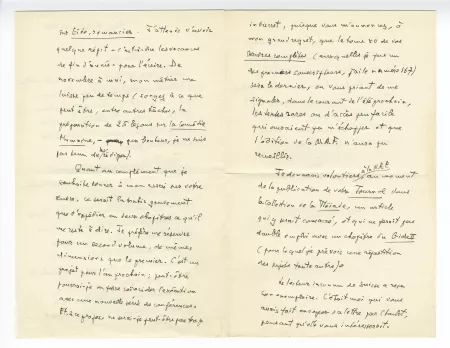 sur Gide, romancier. J'attends d'avoir
quelque répit - c'est-à-dire les vacances
de fin d'année - pour l'écrire. De
novembre à mai, mon métier me
laisse peu de temps (songez à ce que
peut être, entre autres tâches, la
préparation de 25 leçons sur la Comédie
Humaine, que bonheur, je ne suis
pas tenu de rédiger).
Quant au complément que je
souhaite donner à mon essai sur votre
œuvre, ce serait l'étriquer
que d'expédier en deux chapitres ce qu'il
me reste à dire. Je préfère me réserver
pour un second volume, de mêmes
dimensions que le premier. C'est un
projet pour l'an prochain ; peut-être
pourrai-je en faire coïncider l'exécution
avec une nouvelle série de conférences.
Et à ce propos ne serai-je peut-être pas trop
indiscret, puisque vous m'annoncez, à
mon grand regret, que le tome XV de vos
Œuvres complètes (auxquelles je fus un
des premiers souscripteurs, j'ai le numéro 167)
sera le dernier, en vous priant de me
signaler, dans le courant de l'été prochain,
les textes rares ou d'accès peu facile
qui auraient pu m'échapper et que
l'édition de la N.R.F. n'aurait pas
recueillis.
Je donnerais volontiers à la N.R.F. au moment
de la publication de votre Journal dans
la collection de la Pléiade, un article
qui y serait consacré, et qui ne ferait pas
double emploi avec un chapitre du Gide II
(pour lequel je prévois une répartition
des sujets toute autre).
Le lecteur inconnu de Suisse a reçu
son exemplaire. C'était moi qui vous
avais fait envoyer sa lettre par
pensant qu'elle vous intéresserait.